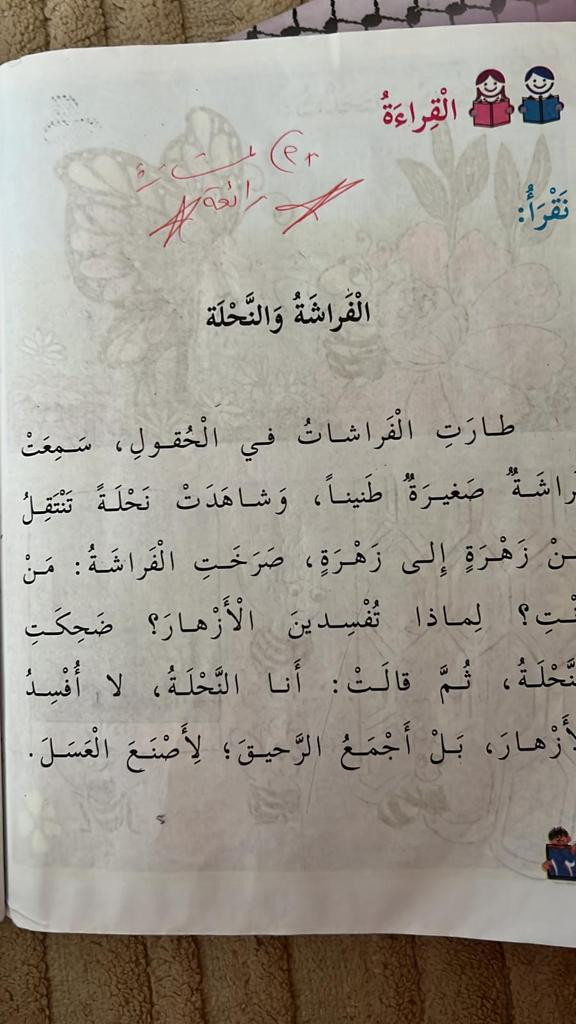 الْقِراءَةُ
رائعة
نَقْرَأُ:
الْفَراشَةُ وَالنَّحْلَة
طارَتِ الْفَراشاتُ في الْحُقولِ، سَمِعَتْ
راشَةٌ صَغيرَةٌ طَنيناً، وَشاهَدَتْ نَحْلَةً تَنْتَقِلُ
نْ زَهْرَةٍ إِلى زَهْرَةٍ، صَرَخَتِ الْفَراشَةُ: مَنْ
نْتِ؟ لِماذا تُفْسِدينَ الْأَزْهارَ؟ ضَحِكَتِ
نَّحْلَةُ، ثُمَّ قالَتْ: أَنا النَّحْلَةُ، لا أُفْسِدُ
لأَزْهارَ، بَلْ أَجْمَعُ الرَّحيقَ؛ لِأَصْنَعَ الْعَسَلَ.
١٢